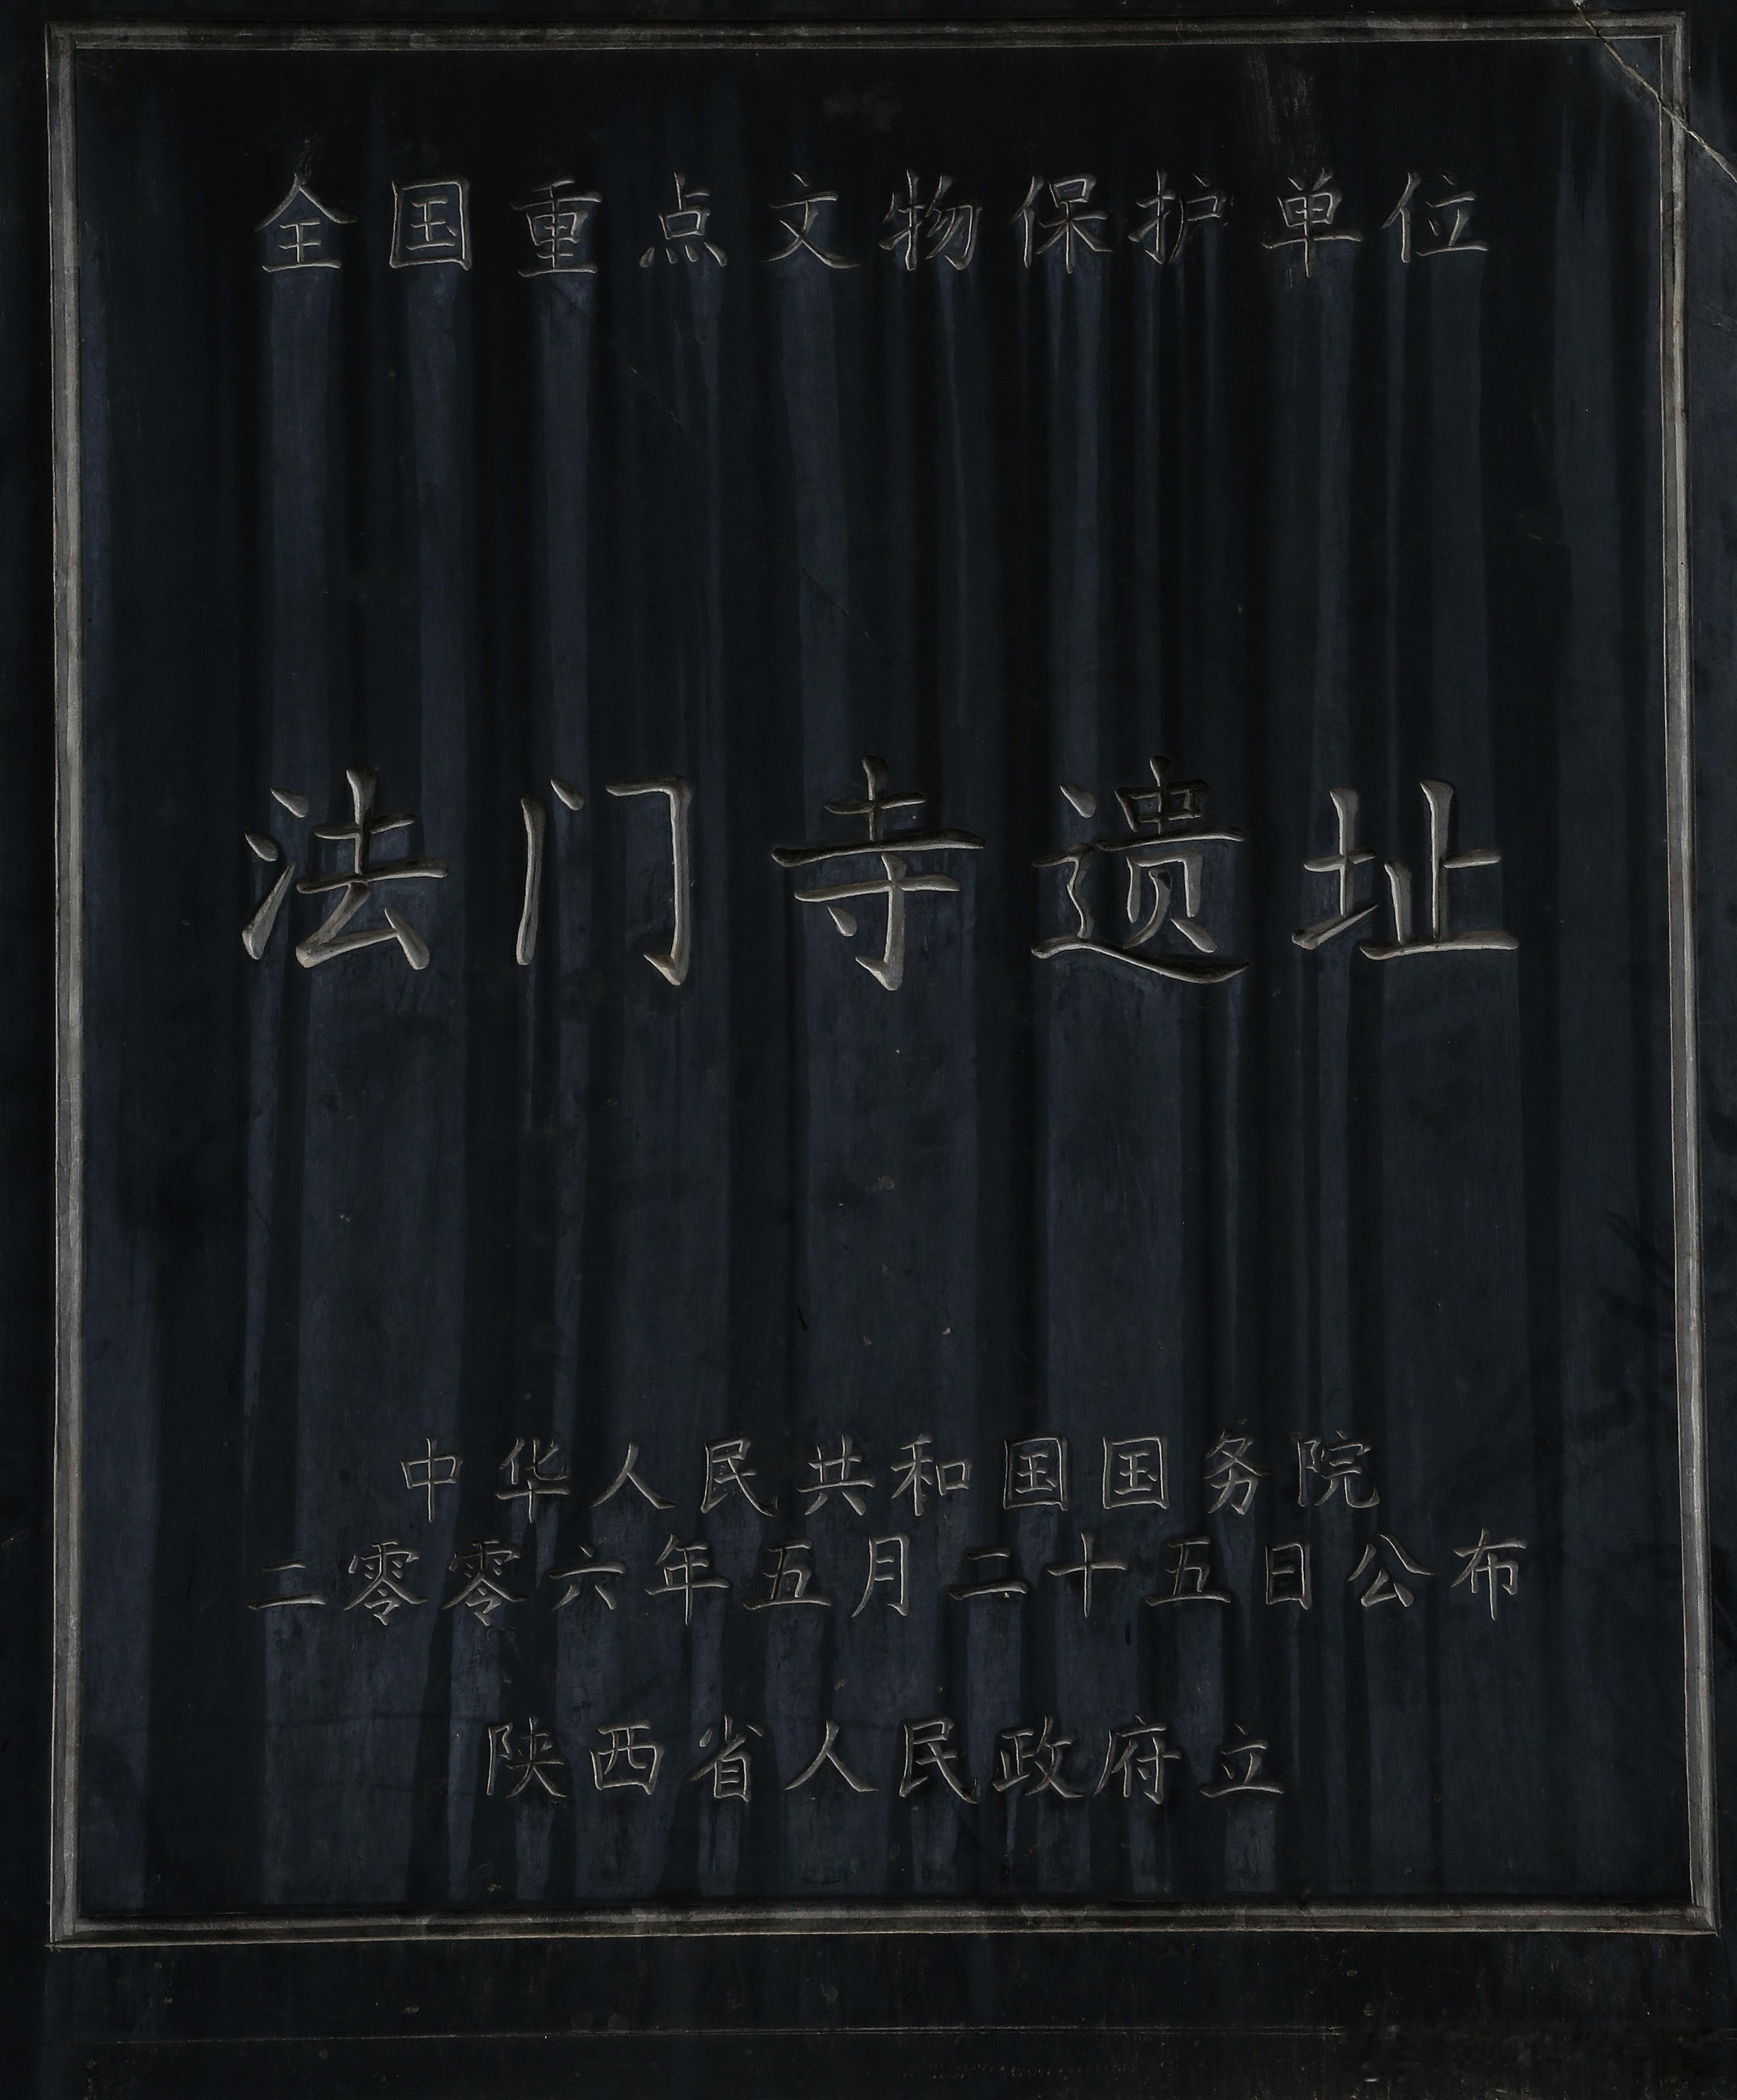 全国重点文物保护单位
法门寺遗址
中华人民共和国国务院
二零零六年五月二十五日公布
陕西省人民政府立